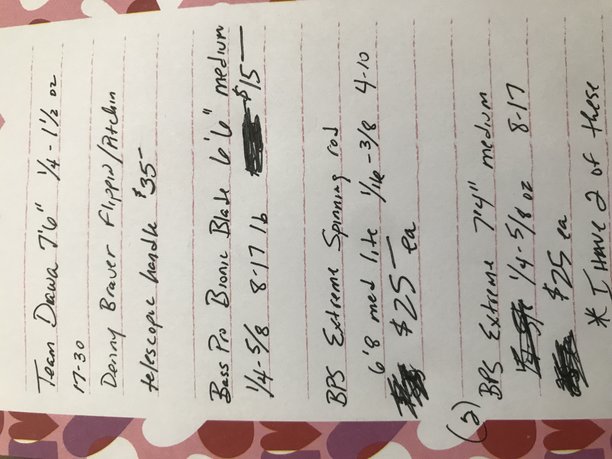 Team Dawa 7'6" 1/4 - 1 1/2 oz
17-30
Denny Brauer Flippin/Pitchin
telescopic handle $35-
Bass Pro Bionic Blade 6'6" medium
1/4 - 5/8 8-17 lb $15-
BPS Extreme Spinning rod
6'8 med lite 1/16 - 3/8 4-10
$25- ea
(2)
BPS Extreme 7'4" medium
1/4 - 5/8 oz 8-17
$25 ea
* I HAVE 2 of these